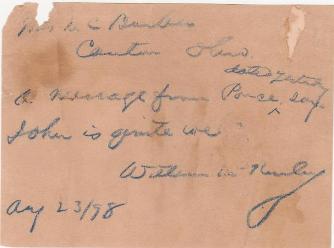 Mrs A C Barber
Canton Ohio
dated yesterday
A message from Ponce, says
John is quite well
William McKinley
Aug 23/98